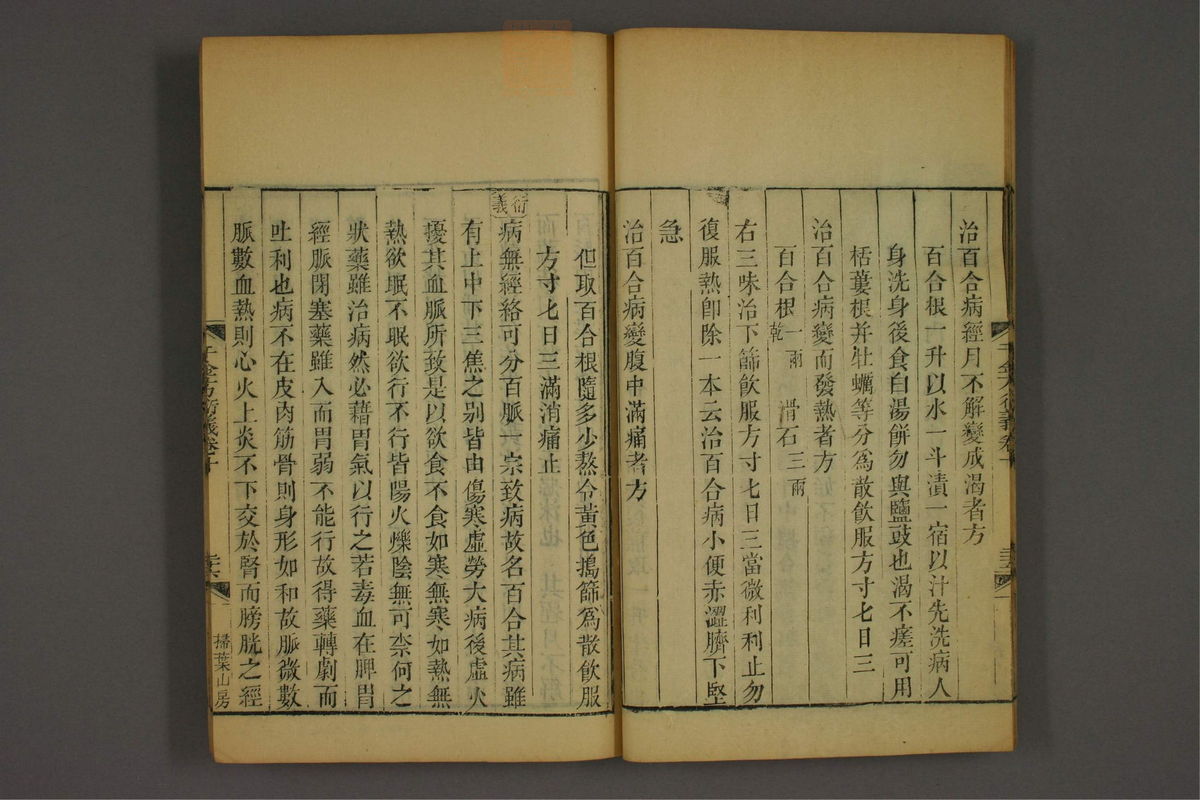 治百合病經月不解變成渴者方
百合根一升以水一斗漬一宿以汁先洗病人
身洗身後食白湯餅勿與鹽豉也渴不瘥可用
栝蔞根并牡蠣等分爲散飲服方寸匕日三
治百合病變而發熱者方
百合根一兩乾 滑石三兩
右三味治下篩飲服方寸匕日三當微利利止勿
復服熱卽除一本云治百合病小便赤澀臍下堅
急
治百合病變腹中滿痛者方
但取百合根隨多少熬令黃色搗篩爲散飲服
方寸匕日三滿消痛止
衍義
病無經絡可分百脈一宗致病故名百合其病雖
有上中下三焦之别皆由傷寒虛勞大病後虛火
擾其血脈所致是以欲食不食如寒無寒如熱無
熱欲眠不眠欲行不行皆陽火爍陰無可柰何之
狀藥雖治病然必藉胃氣以行之若毒血在脾胃
經脈閉塞藥雖入而胃弱不能行故得藥轉劇而
吐利也病不在皮肉筋骨則身形如和故脈微數
脈數血熱則心火上炎不下交於腎而膀胱之經
千金方衍義卷十
三六
掃葉山房